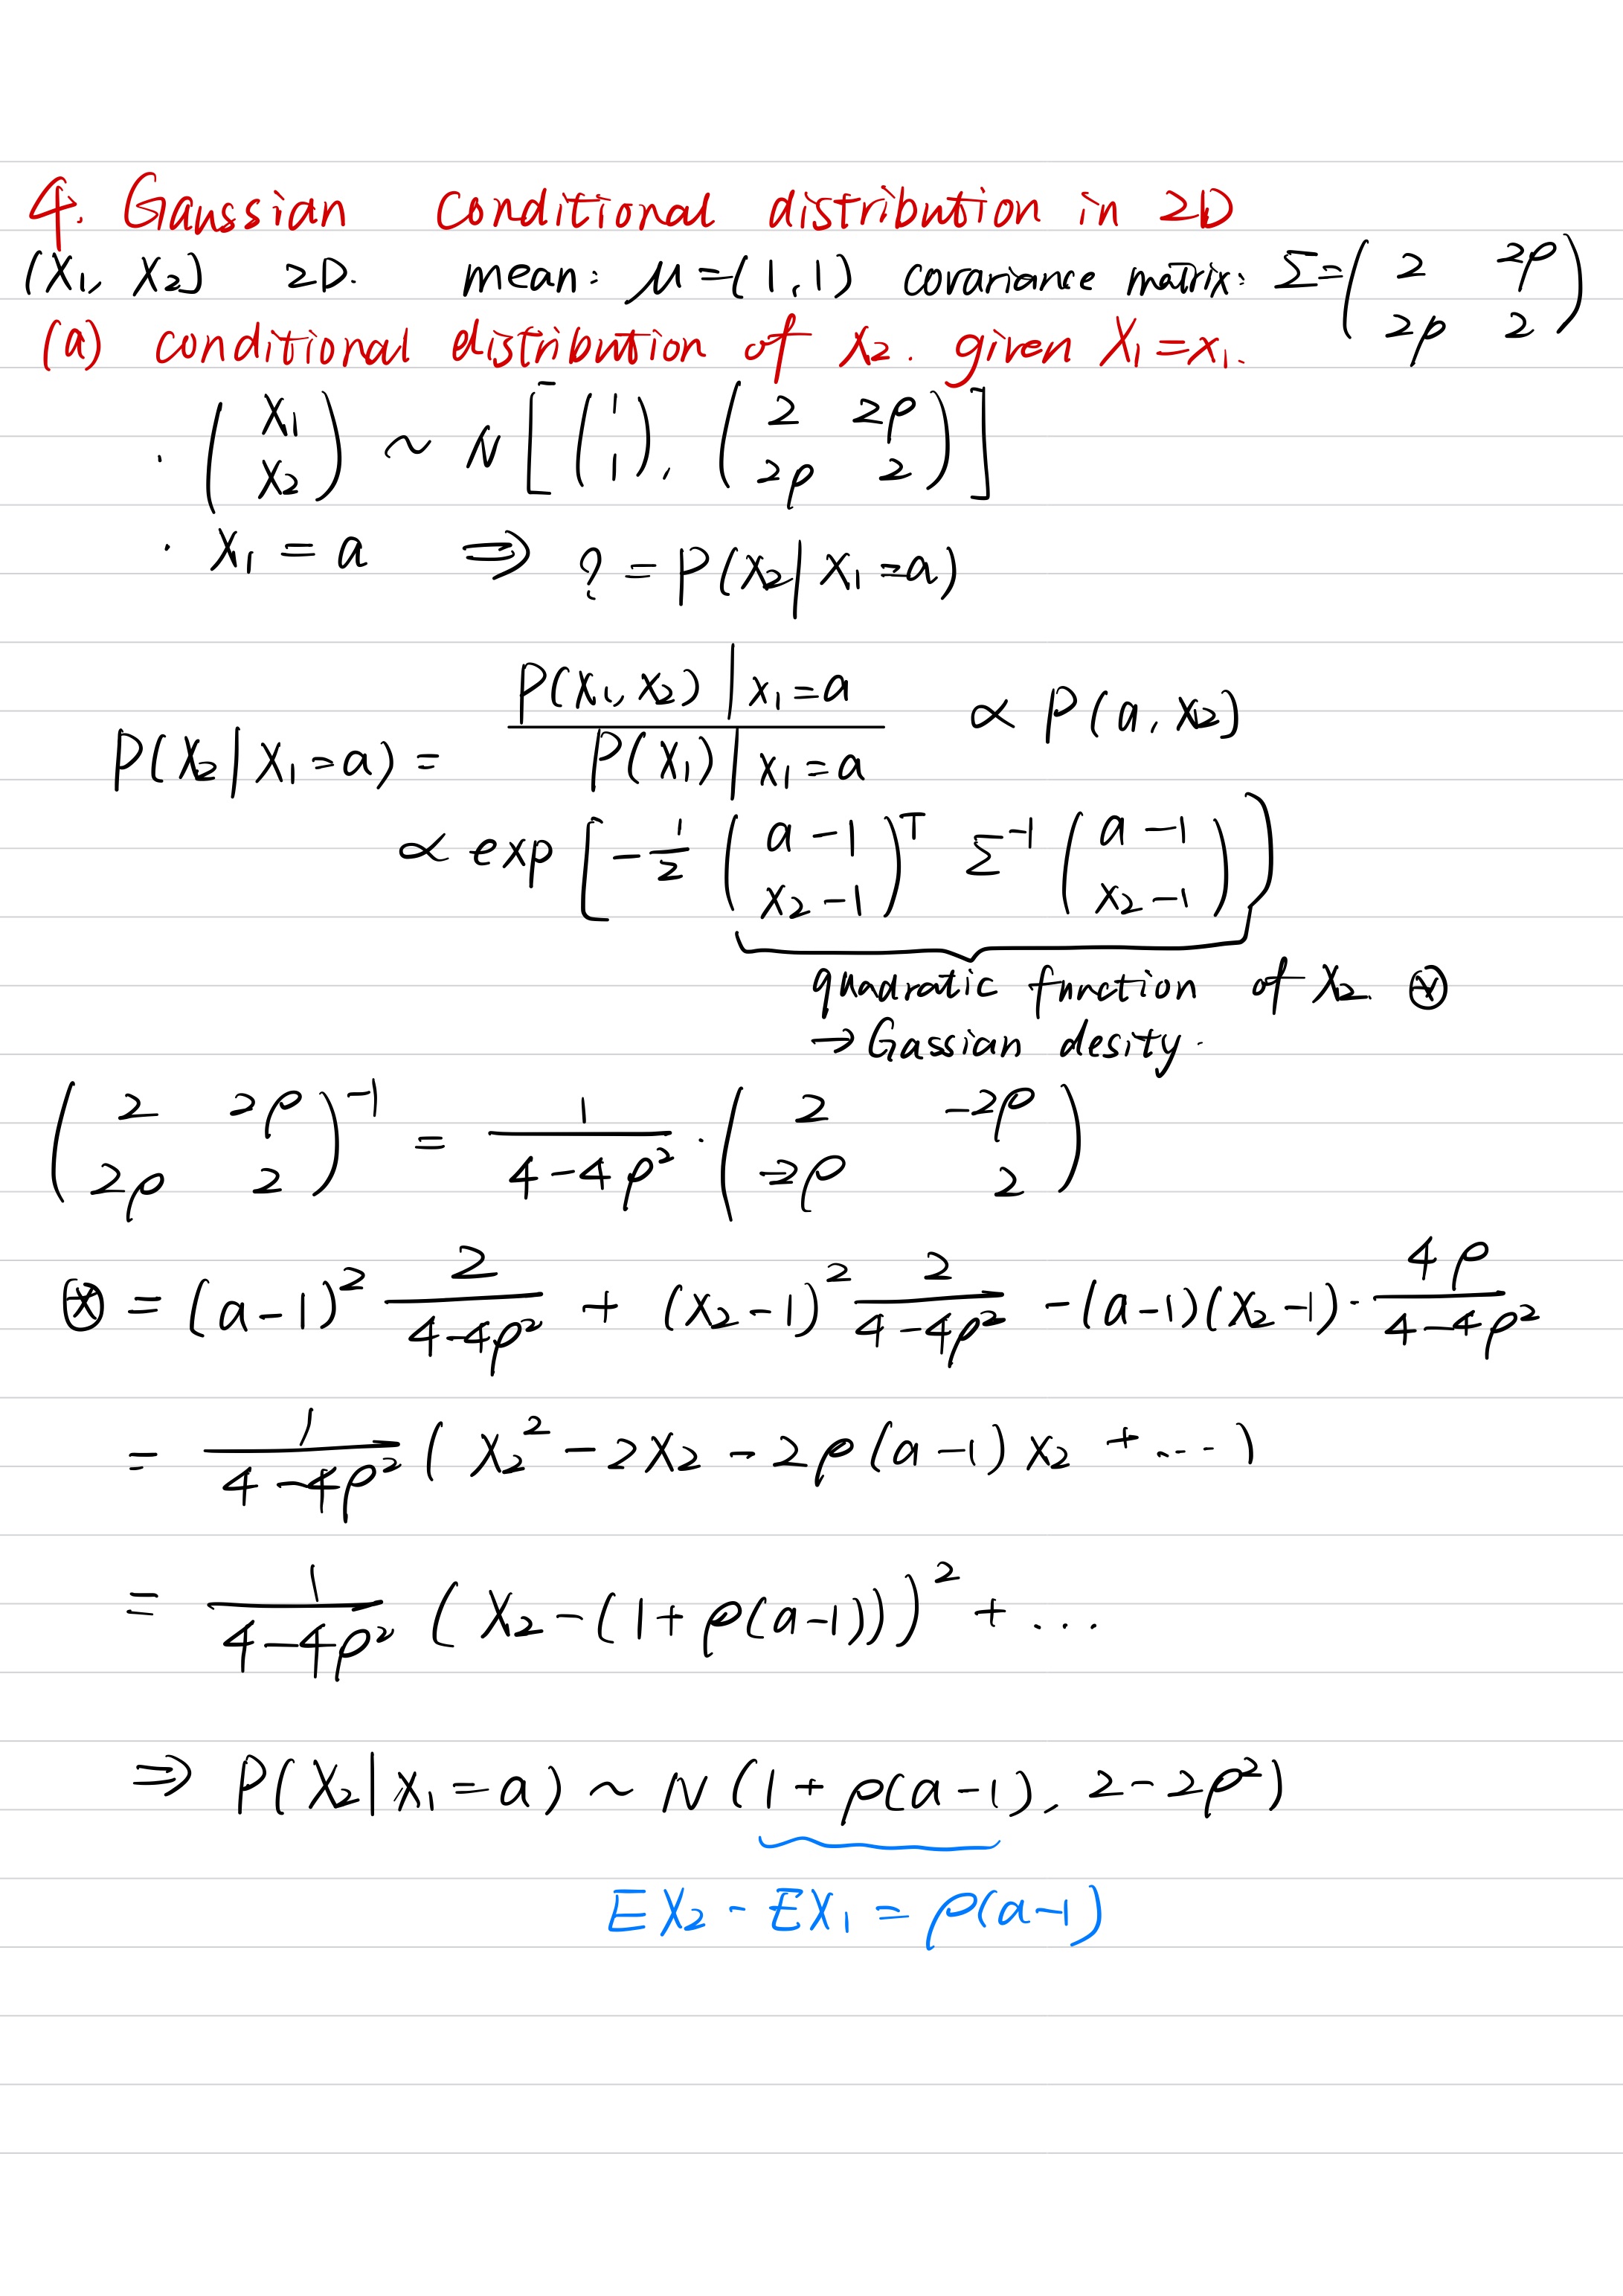 4. Gaussian Conditional distribution in 2D
(X₁, X₂) 2D. mean: μ=(1,1) covariance matrix: Σ=(2 2ρ; 2ρ 2)
(a) conditional distribution of X₂. given X₁=x₁.
· (X₁; X₂) ~ N[(1; 1), (2 2ρ; 2ρ 2)]
· X₁ = a ⇒ ? = P(X₂|X₁=a)
P(X₂|X₁=a) = P(X₁,X₂)|x₁=a / P(X₁)|x₁=a ∝ P(a, X₂)
∝ exp[-1/2 (a-1; X₂-1)ᵀ Σ⁻¹ (a-1; X₂-1)]
quadratic function of X₂ ⊛
→ Gassian desity.
(2 2ρ; 2ρ 2)⁻¹ = 1/(4-4ρ²) · (2 -2ρ; -2ρ 2)
⊛ = (a-1)² 2/(4-4ρ²) + (X₂-1)² 2/(4-4ρ²) - (a-1)(X₂-1) · 4ρ/(4-4ρ²)
= 1/(4-4ρ²) (X₂² - 2X₂ - 2ρ(a-1)X₂ + ...)
= 1/(4-4ρ²) (X₂-(1+ρ(a-1)))² + ...
⇒ P(X₂|X₁=a) ~ N(1+ρ(a-1), 2-2ρ²)
EX₂ - EX₁ = ρ(a-1)